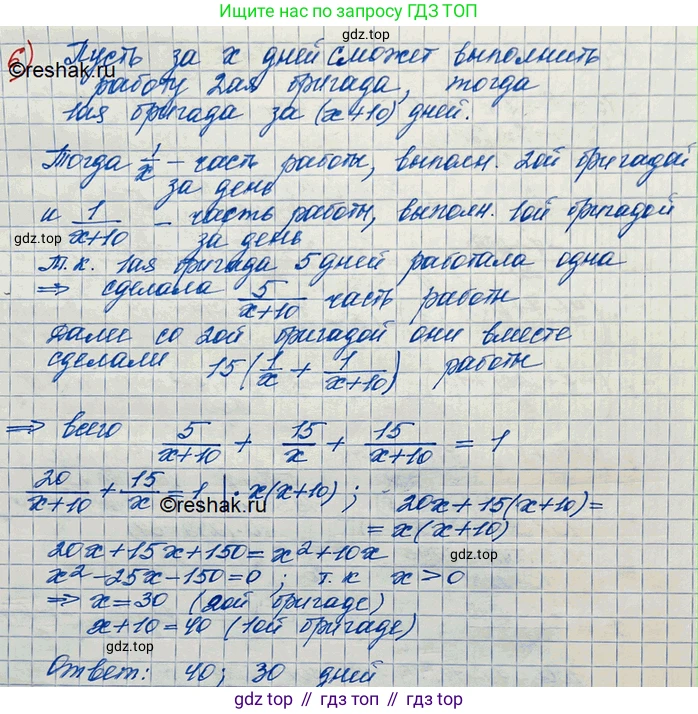 Ищите нас по запросу ГДЗ ТОП
6) Пусть за x дней сможет выполнить
©reshak.ru
работу 2ая бригада, тогда
1ая бригада за (x+10) дней.
Тогда 1/x – часть работы, выполн. 2ой бригадой
за день
и 1/(x+10) – часть работы, выполн. 1ой бригадой
gdz.top
за день
Т.к. 1ая бригада 5 дней работала одна
⇒ сделала 5/(x+10) часть работы
gdz.top
Далее со 2ой бригадой они вместе
сделали 15(1/x + 1/(x+10)) работы
gdz.top
⇒ всего 5/(x+10) + 15/x + 15/(x+10) = 1
20/(x+10) + 15/x = 1 | · x(x+10) ; 20x+15(x+10)=
©reshak.ru
= x(x+10)
20x+15x+150=x²+10x
gdz.top
x²-25x-150=0 ; т.к x>0
⇒ x=30 (2ой бригаде)
x+10=40 (1ой бригаде)
gdz.top
Ответ: 40; 30 дней
gdz.top
gdz.top // гдз.топ // gdz.top // гдз.топ